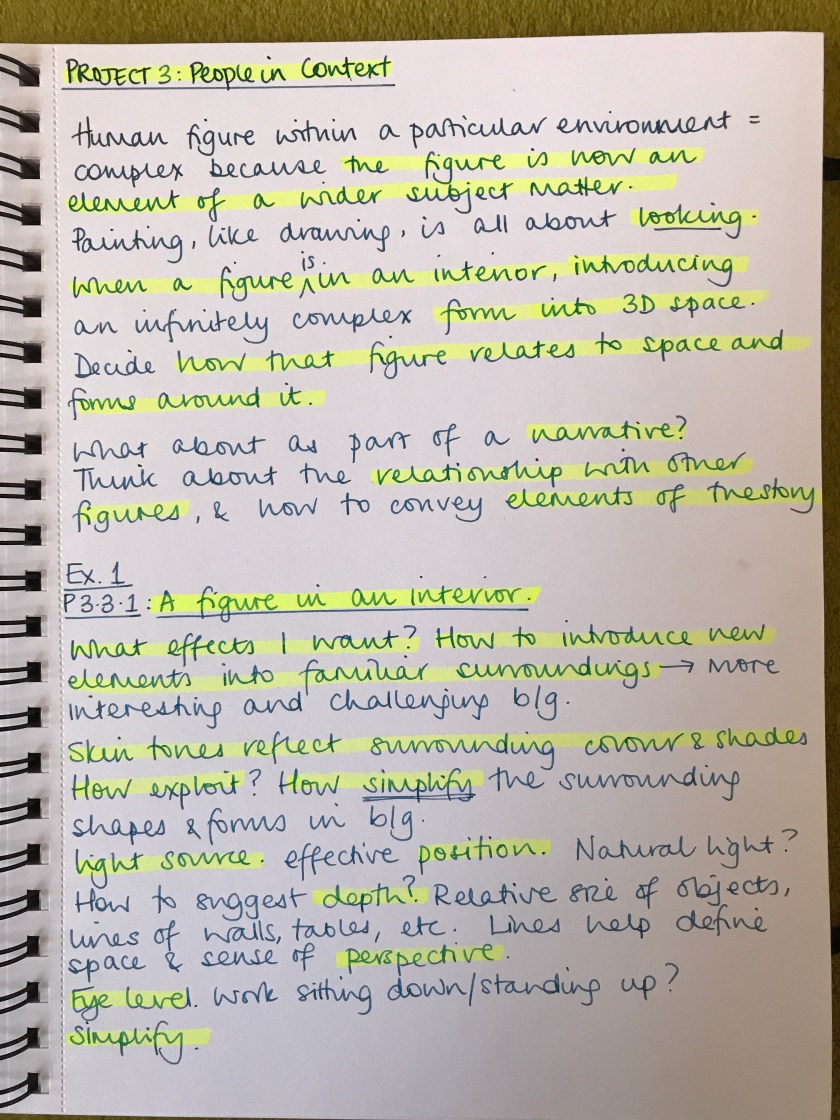 PROJECT 3: People in Context
Human figure within a particular environment =
complex because the figure is now an
element of a wider subject matter.
Painting, like drawing, is all about looking.
When a figure is in an interior, introducing
an infinitely complex form into 3D space.
Decide how that figure relates to space and
forms around it.
What about as part of a narrative?
Think about the relationship with other
figures, & how to convey elements of the story
Ex. 1
P3.3.1: A figure in an interior.
What effects I want? How to introduce new
elements into familiar surroundings → more
interesting and challenging b/g.
Skin tones reflect surrounding colour & shades
How exploit? How simplify the surrounding
shapes & forms in b/g.
light source. effective position. Natural light?
How to suggest depth? Relative size of objects,
lines of walls, tables, etc. Lines help define
space & sense of perspective.
Eye level. Work sitting down/standing up?
Simplify.